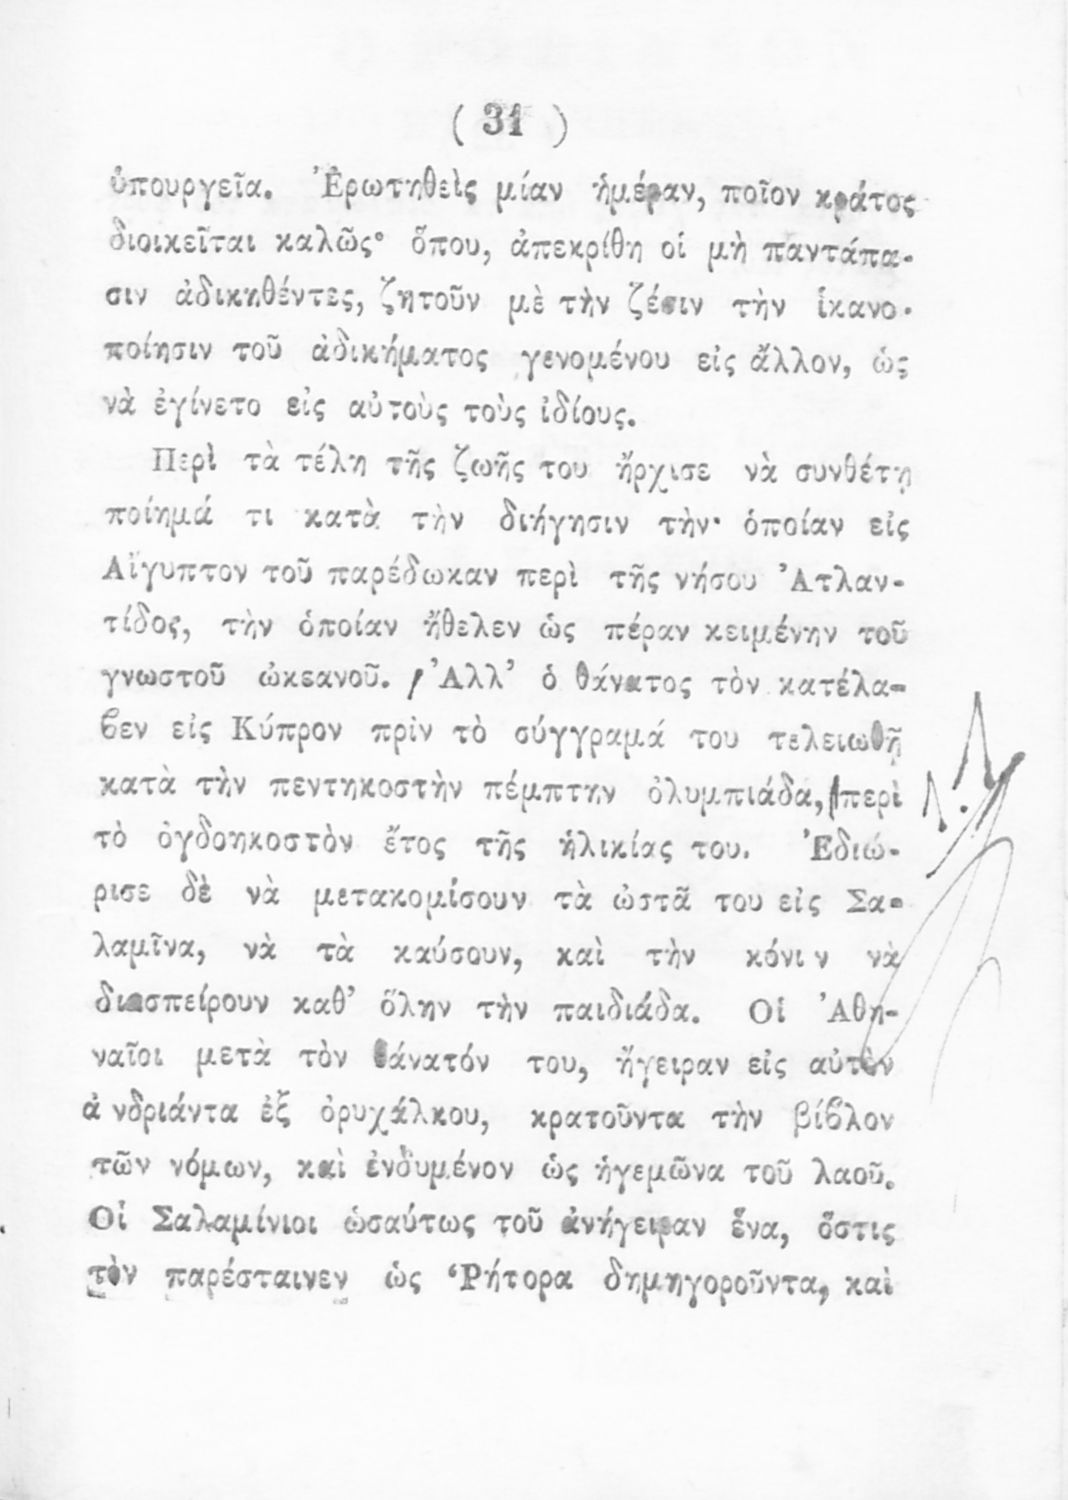 ( 31 )
ὑπουργεῖα. Ἐρωτηθεὶς μίαν ἡμέραν, ποῖον κράτος
διοικεῖται καλῶς· ὅπου, ἀπεκρίθη οἱ μὴ παντάπα-
σιν ἀδικηθέντες, ζητοῦν μὲ τὴν ζέσιν τὴν ἱκανο-
ποίησιν τοῦ ἀδικήματος γενομένου εἰς ἄλλον, ὡς
νὰ ἐγίνετο εἰς αὐτοὺς τοὺς ἰδίους.
Περὶ τὰ τέλη τῆς ζωῆς του ἤρχισε νὰ συνθέτῃ
ποίημά τι κατὰ τὴν διήγησιν τὴν· ὁποίαν εἰς
Αἴγυπτον τοῦ παρέδωκαν περὶ τῆς νήσου Ἀτλαν-
τίδος, τὴν ὁποίαν ἤθελεν ὡς πέραν κειμένην τοῦ
γνωστοῦ ὠκεανοῦ. Ἀλλ’ ὁ θάνατος τὸν κατέλα-
ϐεν εἰς Κύπρον πρὶν τὸ σύγγραμά του τελειωθῇ
κατὰ τὴν πεντηκοστὴν πέμπτην ὀλυμπιάδα, περὶ
τὸ ὀγδοηκοστὸν ἔτος τῆς ἡλικίας του. Ἐδιώ-
ρισε δὲ νὰ μετακομίσουν τὰ ὠστᾶ του εἰς Σα-
λαμῖνα, νὰ τὰ καύσουν, καὶ τὴν κόνιν νὰ
διασπείρουν καθ’ ὅλην τὴν παιδιάδα. Οἱ Ἀθη-
ναῖοι μετὰ τὸν θάνατόν του, ἤγειραν εἰς αὐτὸν
ἀνδριάντα ἐξ ὀρυχάλκου, κρατοῦντα τὴν βίϐλον
τῶν νόμων, καὶ ἐνδυμένον ὡς ἡγεμῶνα τοῦ λαοῦ.
Οἱ Σαλαμίνιοι ὡσαύτως τοῦ ἀνήγειραν ἕνα, ὅστις
τὸν παρέσταινεν ὡς Ῥήτορα δημηγοροῦντα, καὶ